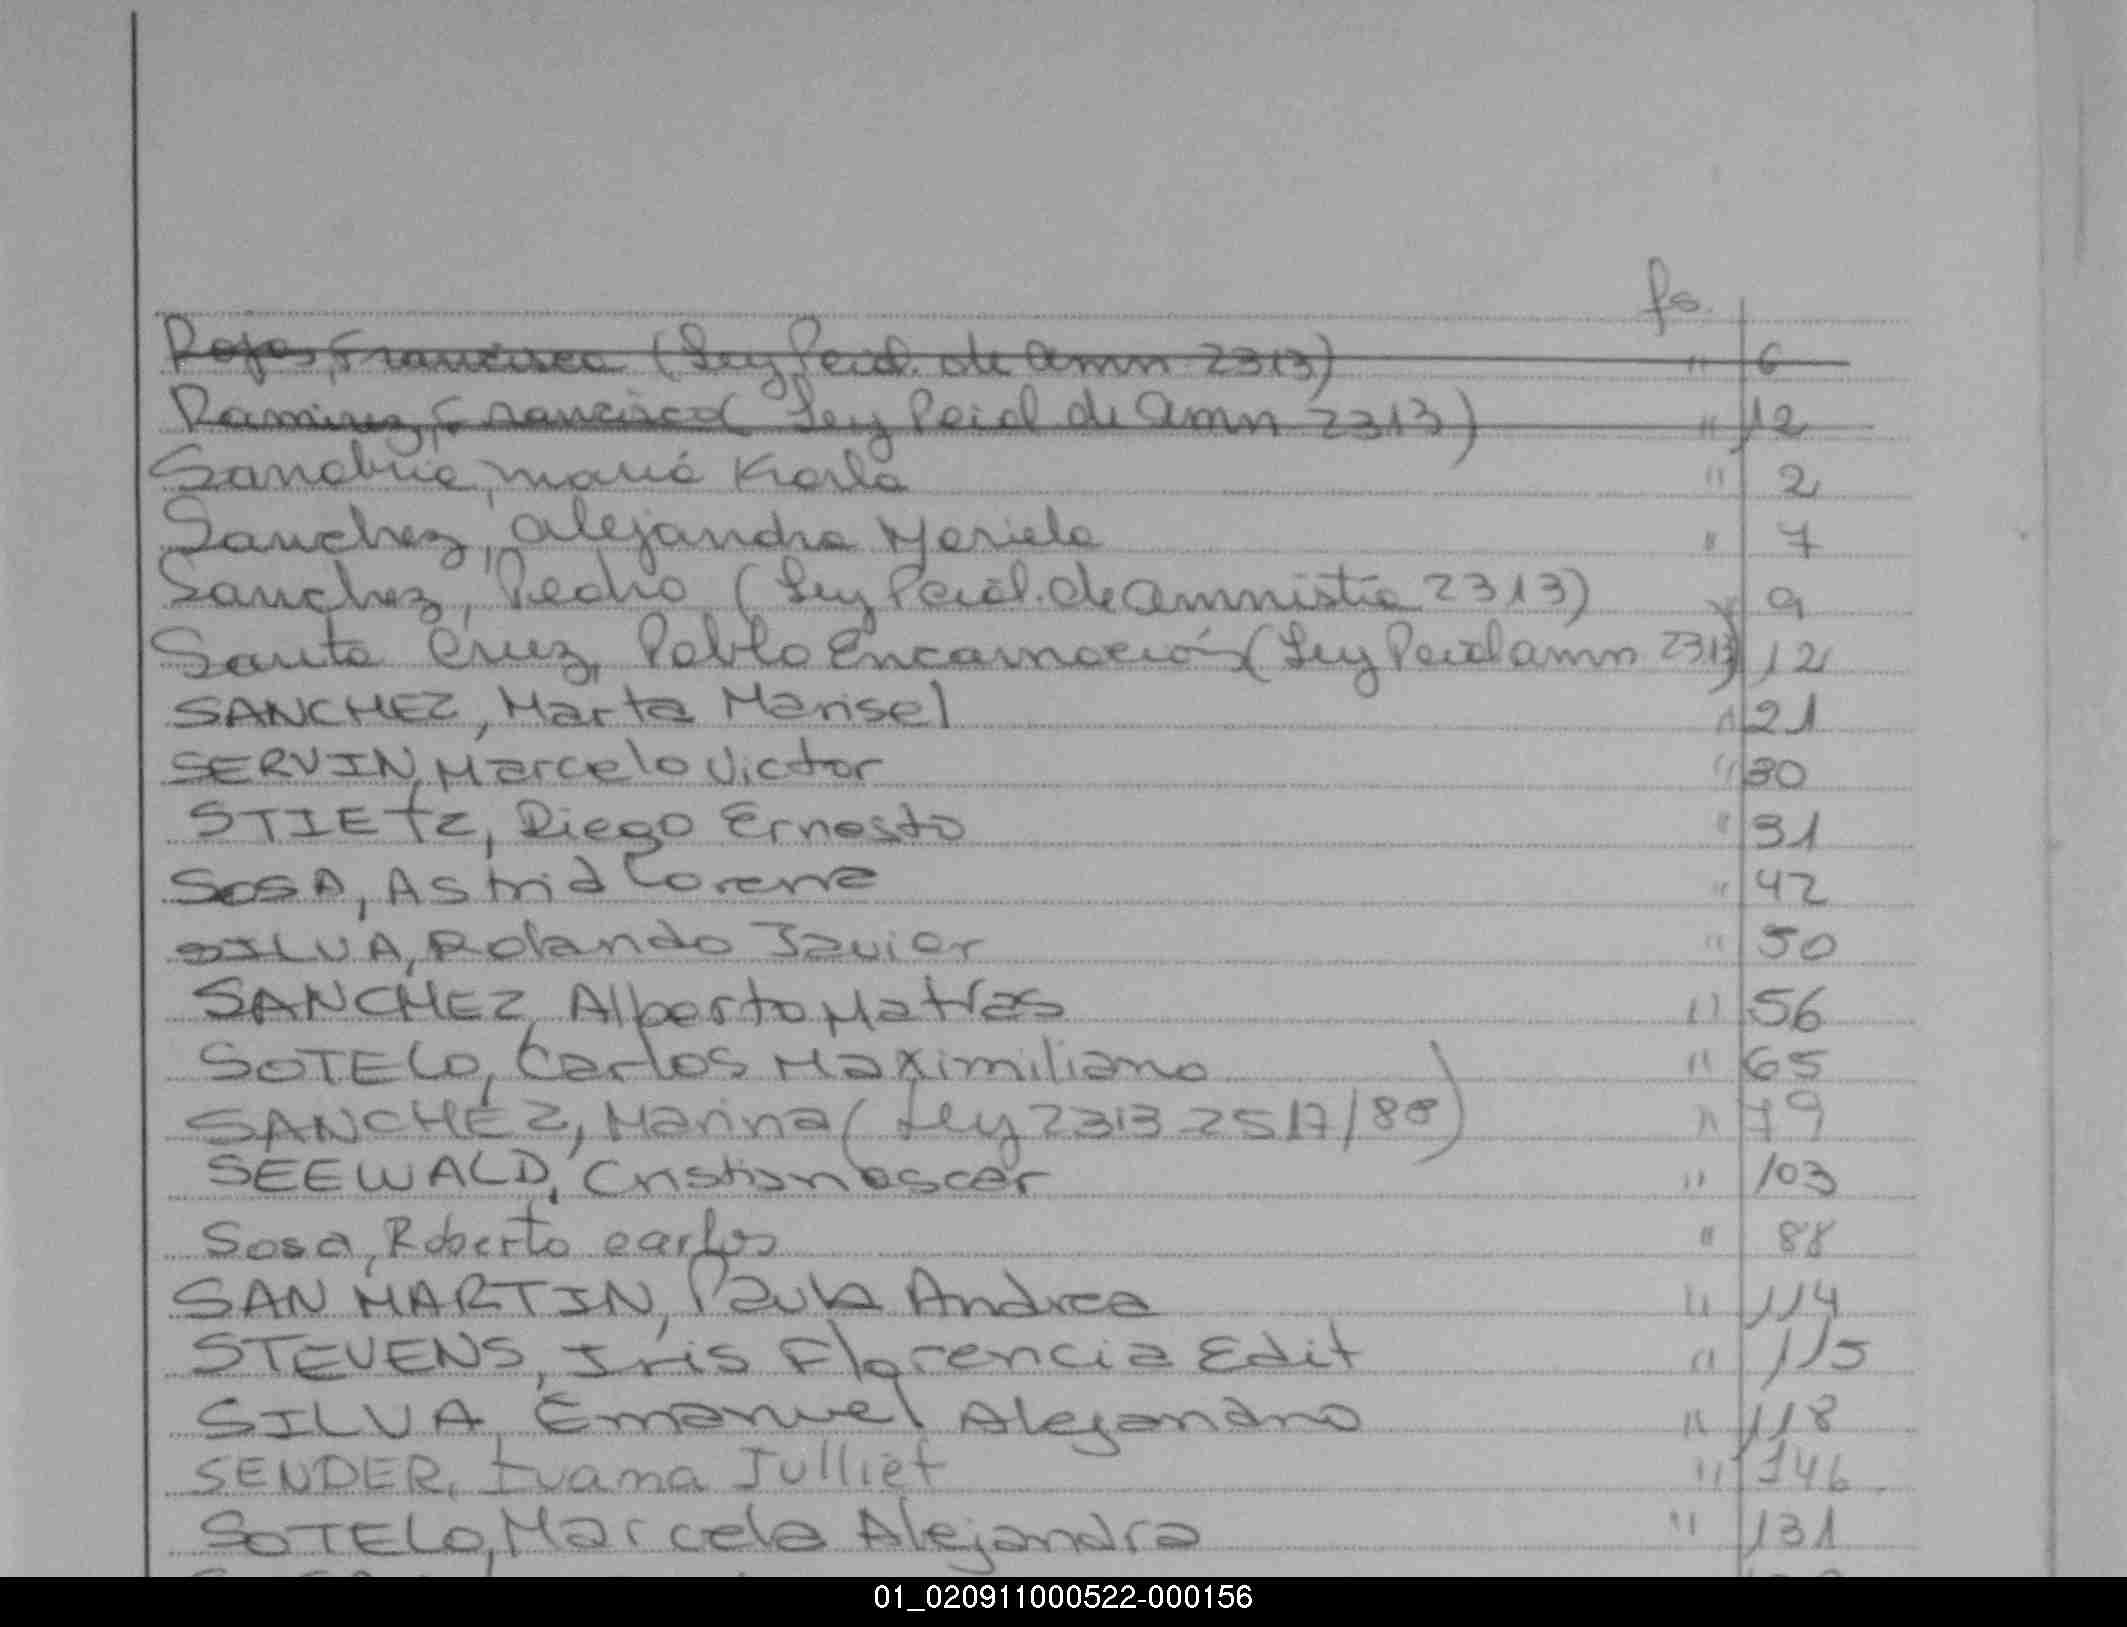 fs.
Rojas, Francisca (Ley Pcial. de amn 2313) " 6
Ramirez, Francisco (Ley Pcial de amn 2313) " 12
María Karla " 2
Sanchez, alejandra Mariela " 7
Sanchez, Pedro (Ley Pcial. de amnistia 2313) " 9
Santa Cruz, Pablo Encarnación (Ley Pcial amn 2313) 12
SANCHEZ, Marta Marisel " 21
SERVIN, Marcelo Victor " 30
STIEtz, Diego Ernesto " 31
SOSA, Astrid Lorena " 42
SILVA, Rolando Javier " 50
SANCHEZ, Alberto Matías " 56
SOTELO, Carlos Maximiliano " 65
SANCHEZ, Marina (Ley 2313 2517/88) " 79
SEEWALD, Cristian oscar " 103
Sosa, Roberto carlos " 88
SAN MARTIN, Paula Andrea " 114
STEVENS, Iris Florencia Edit " 115
SILVA, Emanuel Alejandro " 118
SENDER, Ivana Julliet " 146
SOTELO, Marcela Alejandra " 131
01_020911000522-000156